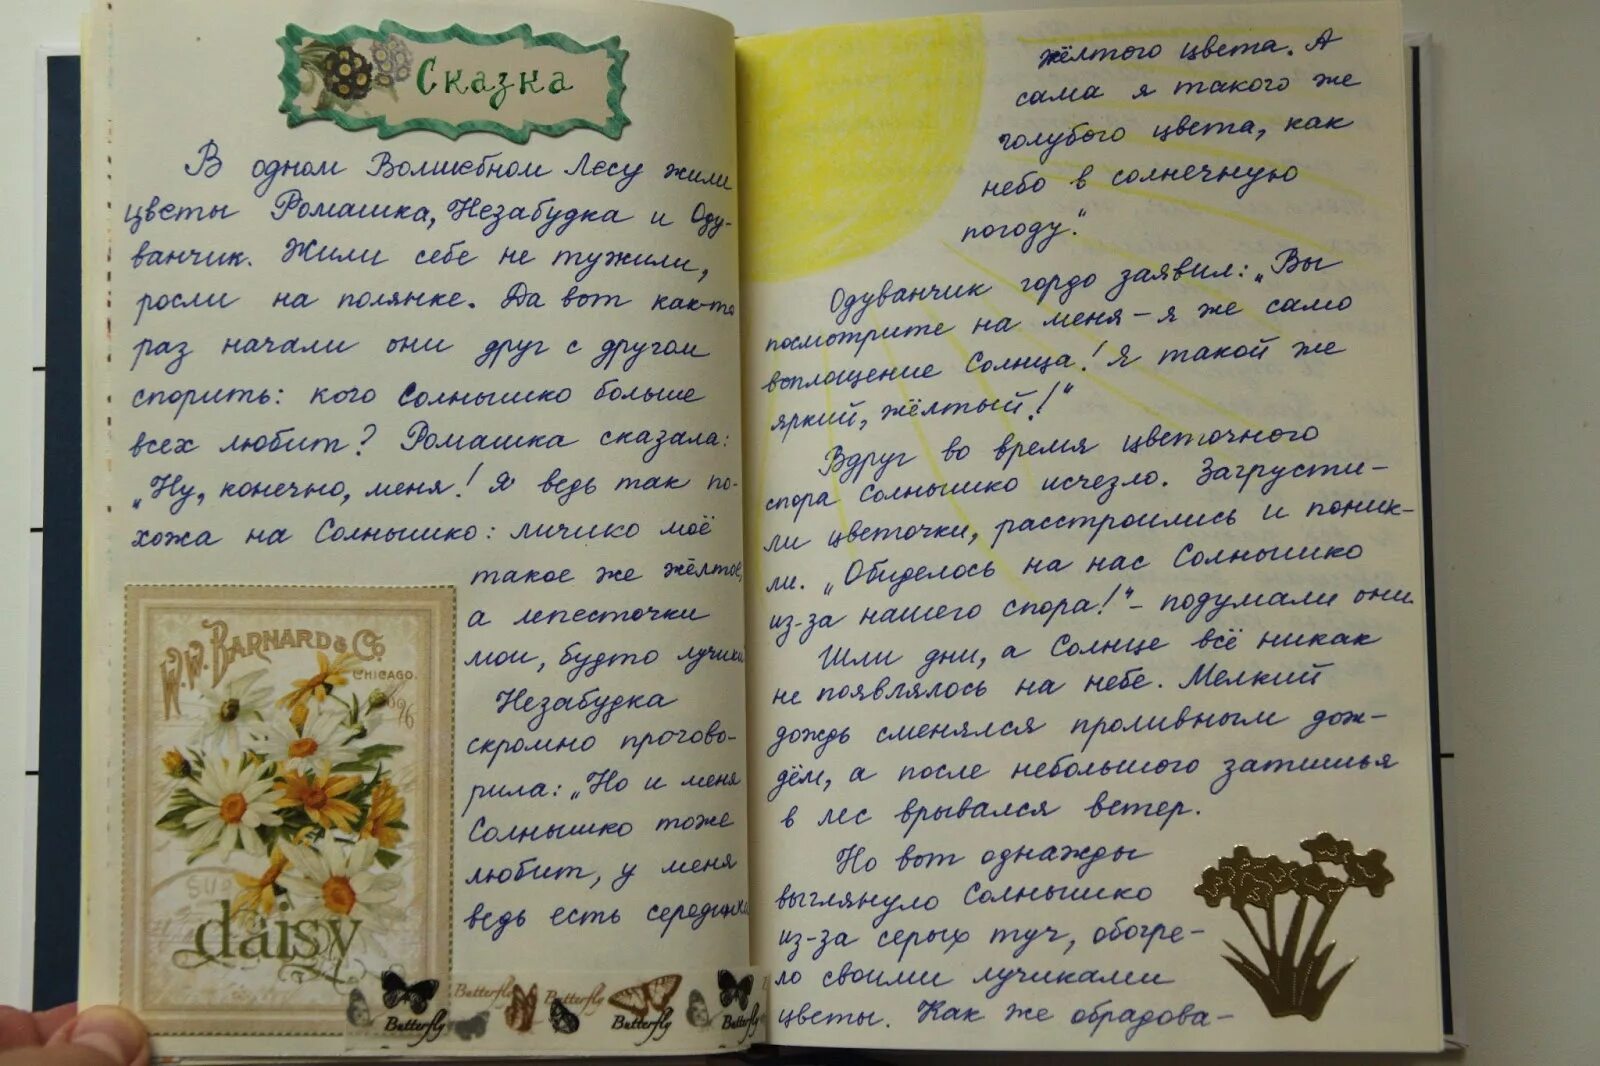 Сказка
В одном Волшебном Лесу жили
цветы Ромашка, Незабудка и Оду-
ванчик. Жили себе не тужили,
росли на полянке. Да вот как-то
раз начали они друг с другом
спорить: кого Солнышко больше
всех любит? Ромашка сказала:
„Ну, конечно, меня! Я ведь так по-
хожа на Солнышко: личико моё
такое же жёлтое,
а лепесточки
мои, будто лучики
Незабудка
скромно прогово-
рила: „Но и меня
Солнышко тоже
любит, у меня
ведь есть серединка
W.W. BARNARD & Co
CHICAGO.
daisy
Butterfly Butterfly Butterfly Butterfly Butterfly
жёлтого цвета. А
сама я такого же
голубого цвета, как
небо в солнечную
погоду."
Одуванчик гордо заявил: „Вы
посмотрите на меня – я же само
воплощение Солнца! Я такой же
яркий, жёлтый!"
Вдруг во время цветочного
спора Солнышко исчезло. Загрусти-
ли цветочки, расстроились и поник-
ли. „Обиделось на нас Солнышко
из-за нашего спора!" – подумали они.
Шли дни, а Солнце всё никак
не появлялось на небе. Мелкий
дождь сменялся проливным дож-
дём, а после небольшого затишья
в лес врывался ветер.
Но вот однажды
выглянуло Солнышко
из-за серых туч, обогре-
ло своими лучиками
цветы. Как же обрадова-